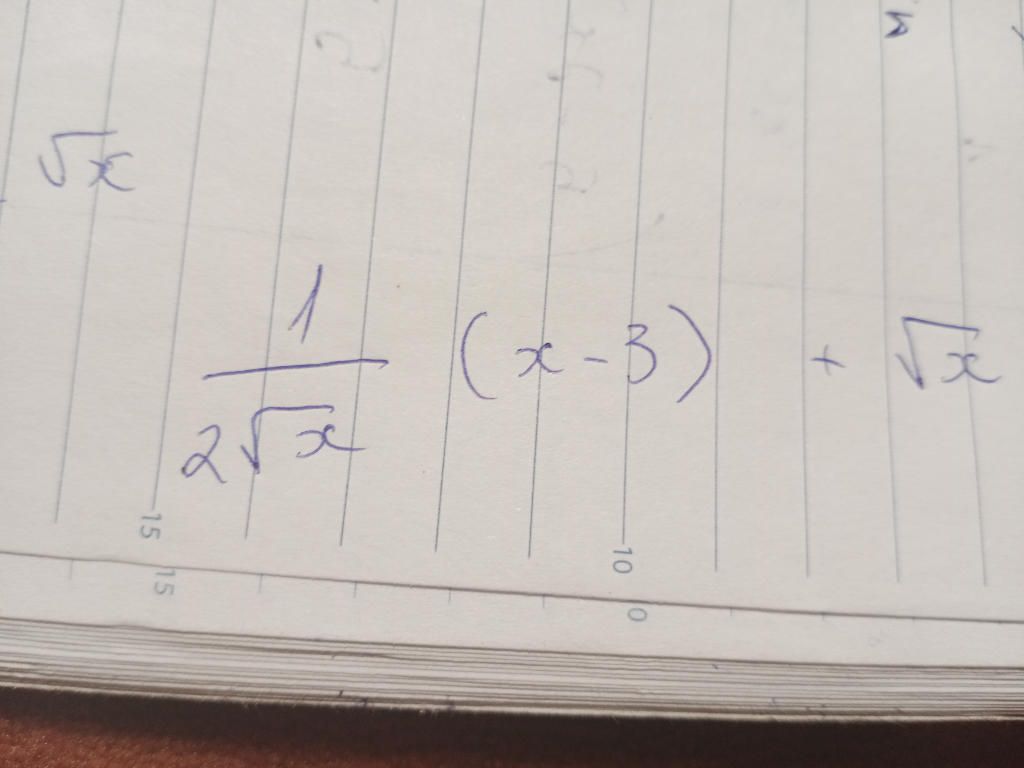 √x
1/(2√x) (x-3) + √x
15 10
15 0